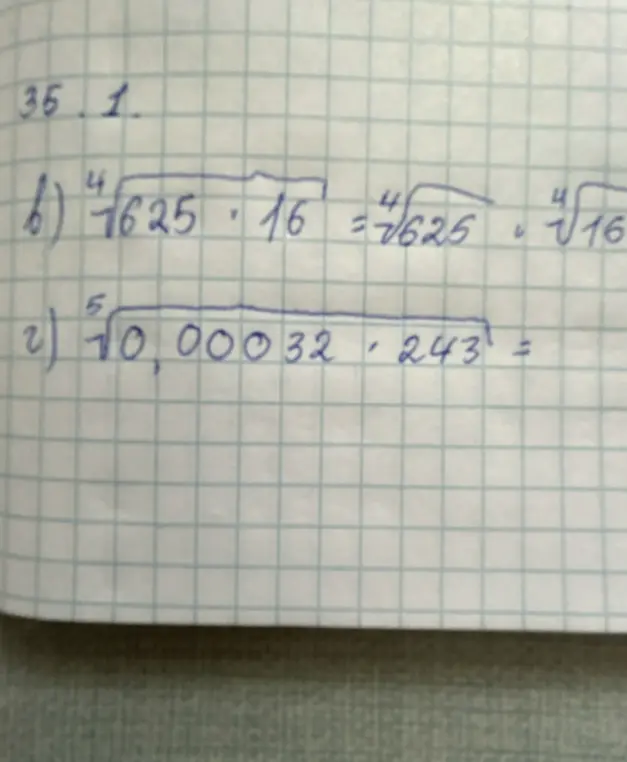 35.1.
в) ⁴√625 · 16 = ⁴√625 · ⁴√16
г) ⁵√0,00032 · 243 =